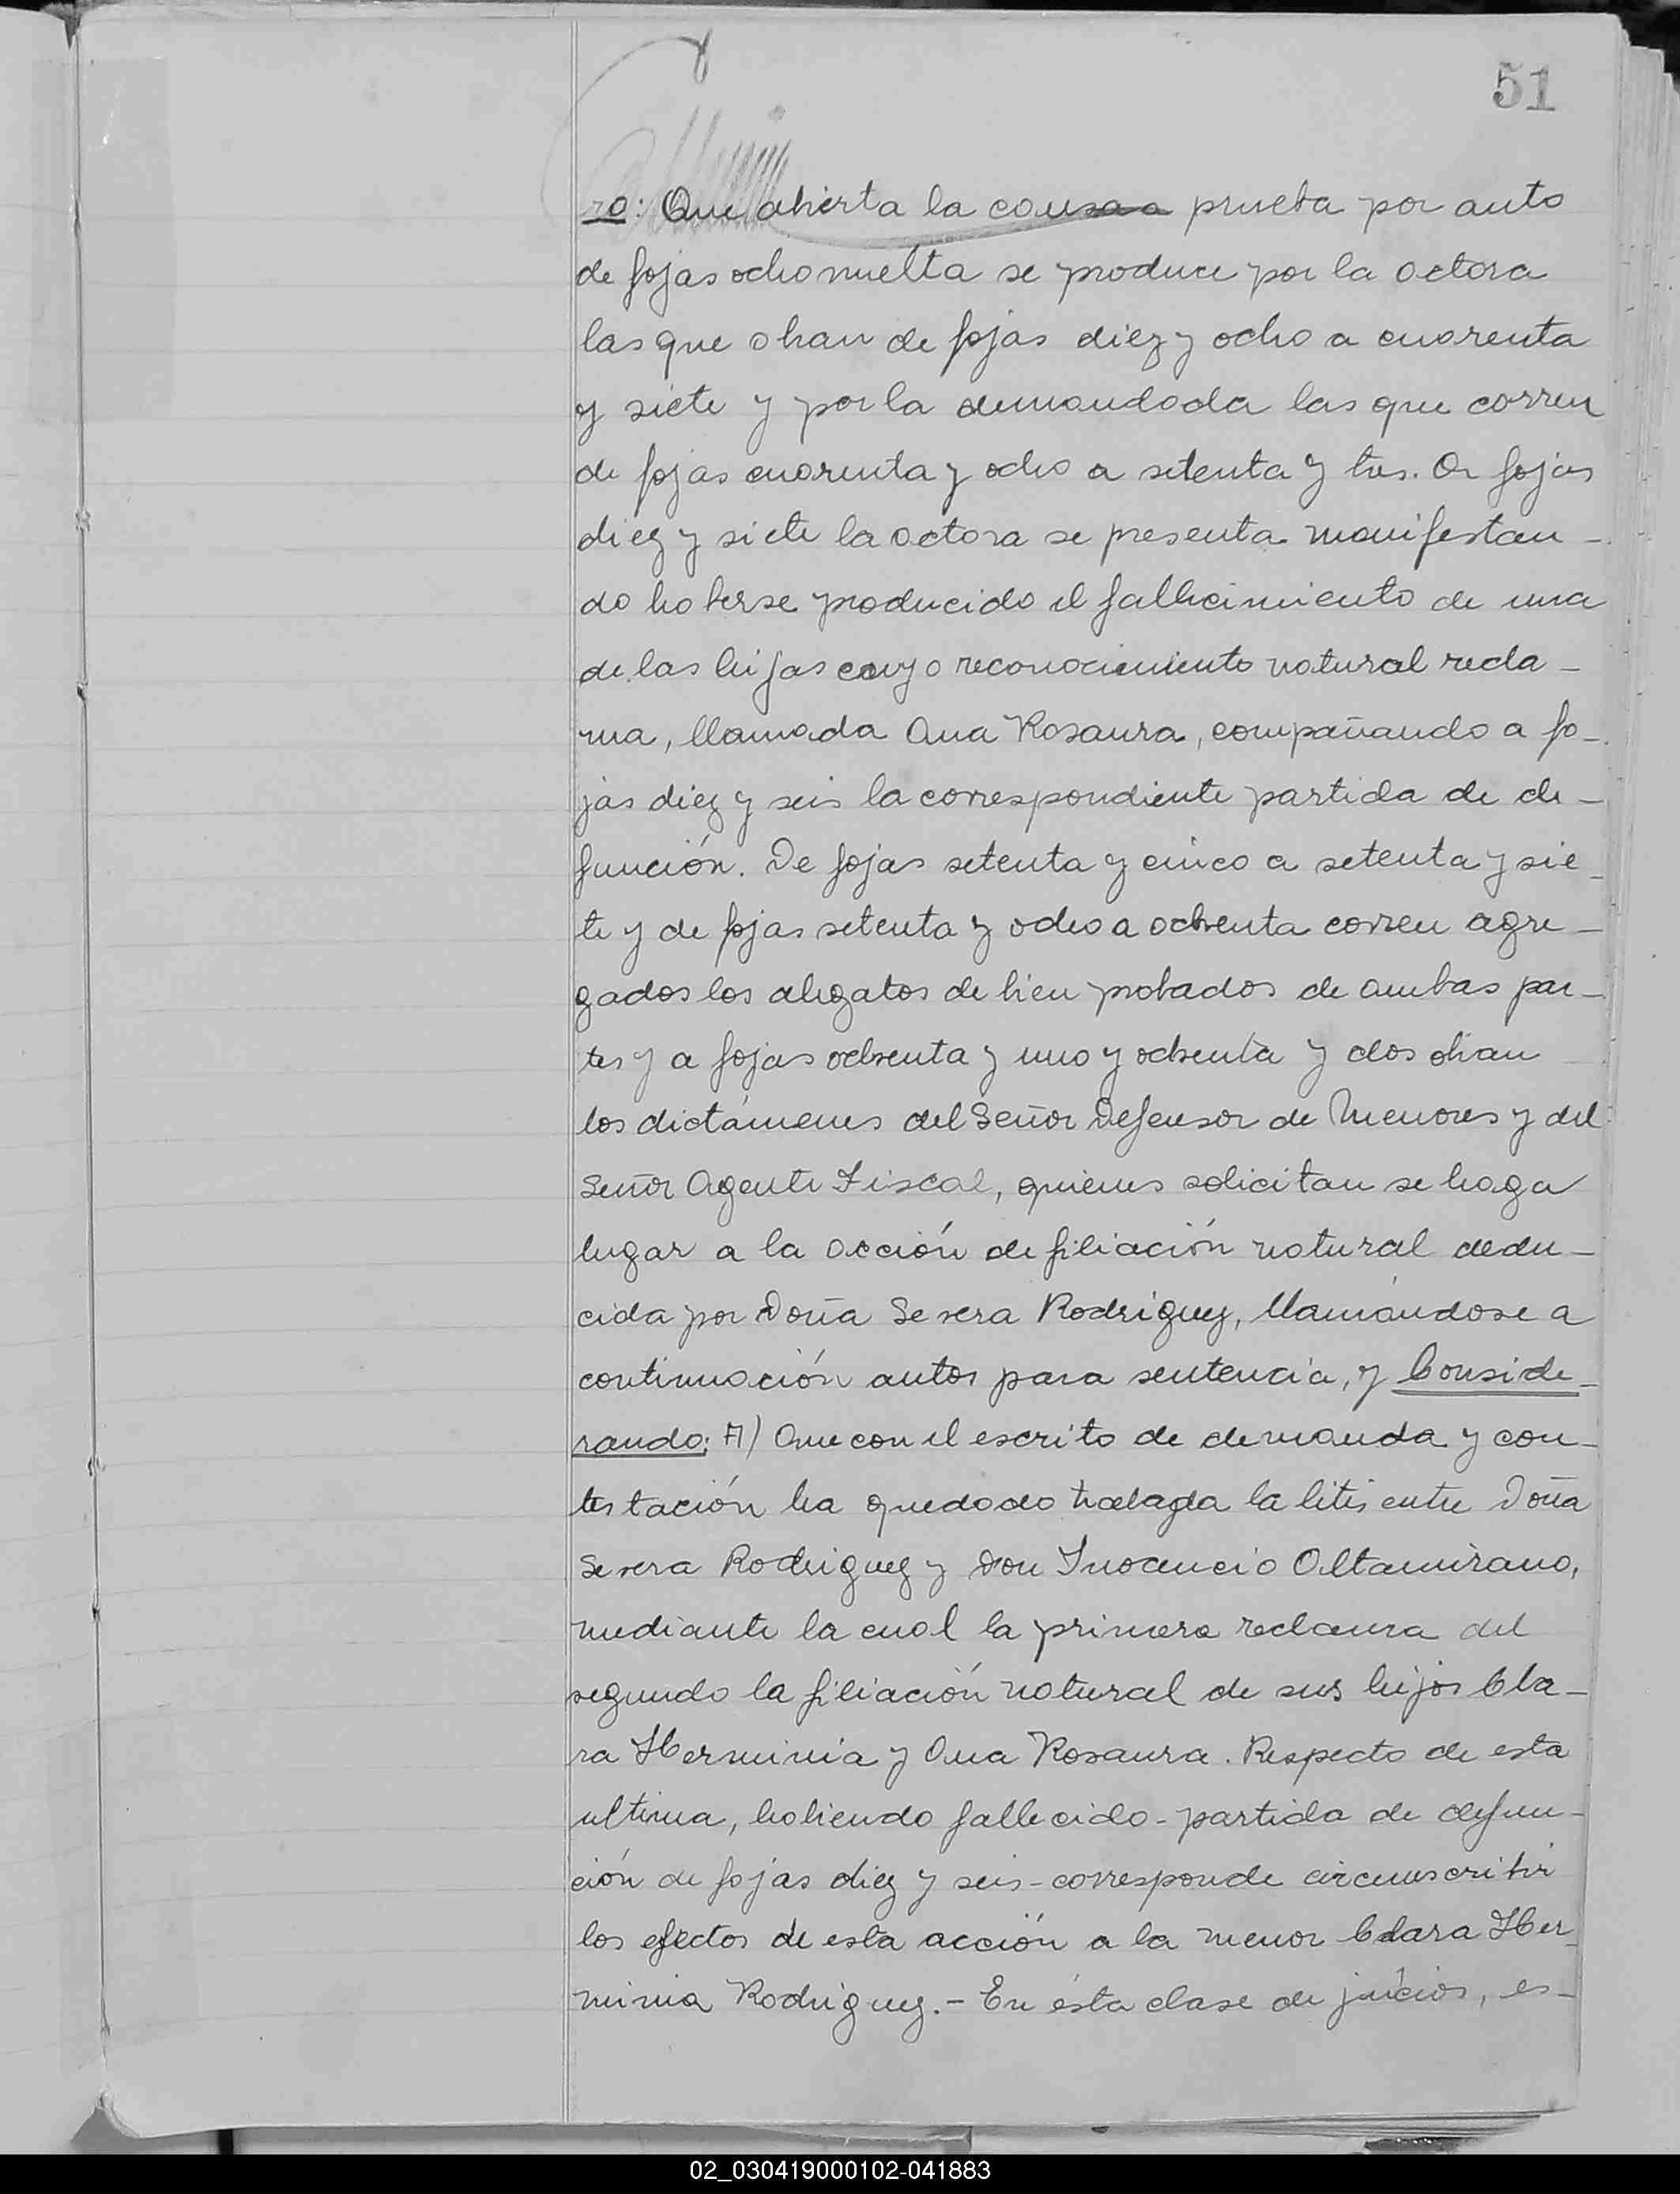 51
ro: Que abierta la causa a prueba por auto
de fojas ocho vuelta se produce por la actora
las que obran de fojas diez y ocho a cuarenta
y siete y por la demandada las que corren
de fojas cuarenta y ocho a setenta y tres. A fojas
diez y siete la actora se presenta manifestan-
do haberse producido el fallecimiento de una
de las hijas cuyo reconocimiento natural recla-
ma, llamada Ana Rosaura, compañando a fo-
jas diez y seis la correspondiente partida de de-
función. De fojas setenta y cinco a setenta y sie-
te y de fojas setenta y ocho a ochenta corren agre-
gados los alegatos de bien probados de ambas par-
tes y a fojas ochenta y uno y ochenta y dos obran
los dictámenes del Señor Defensor de Menores y del
Señor Agente Fiscal, quienes solicitan se haga
lugar a la acción de filiación natural dedu-
cida por Doña Severa Rodriguez, llamándose a
continuación autos para sentencia, y Conside-
rando: A) Que con el escrito de demanda y con-
testación ha quedado trabada la litis entre Doña
Severa Rodriguez y Don Inocencio Altamirano,
mediante la cual la primera reclama del
segundo la filiación natural de sus hijos Cla-
ra Herminia y Ana Rosaura. Respecto de esta
ultima, habiendo fallecido - partida de defun-
ción de fojas diez y seis - corresponde circunscribir
los efectos de esta acción a la menor Clara Her-
minia Rodriguez. - En ésta clase de juicios, es-
02_030419000102-041883